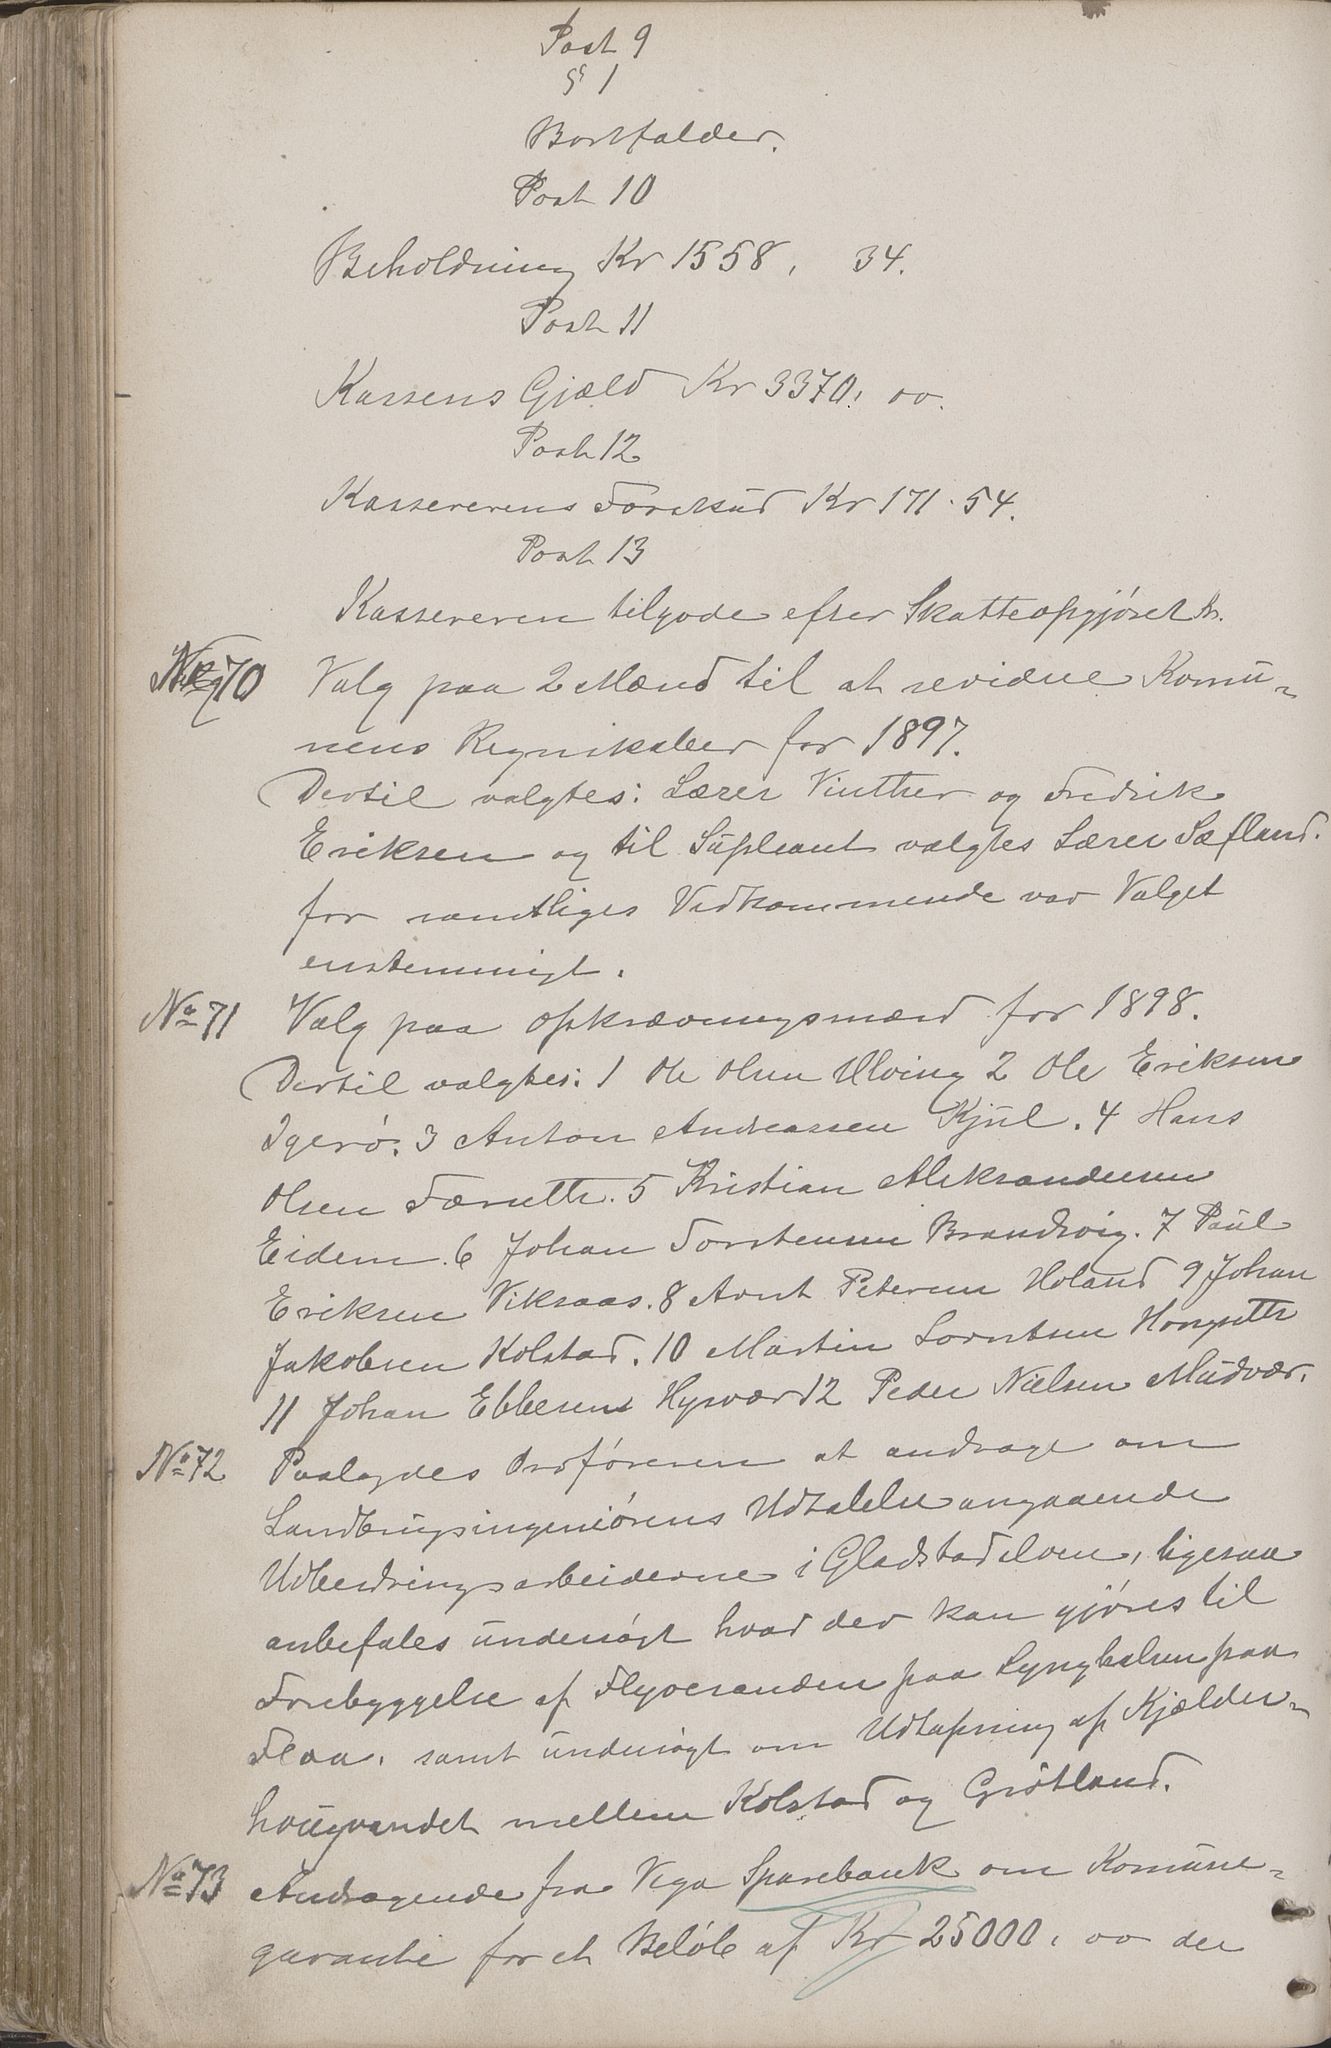 Post 9
§ 1
Bortfalder.
Post 10
Beholdning Kr 1558, 34.
Post 11
Kassens Gjæld Kr 3370, 00.
Post 12
Kassererens Forskud Kr 171.54.
Post 13
Kassereren tilgode efter Skatteopgjøret
No 70 Valg paa 2 Mænd til at revidere Komu-
nens Regnskaber for 1897.
Dertil valgtes: Lærer Vinther og Fredrik
Eriksen og til Supleant valgtes Lærer Sæfland.
for samtliges Vedkommende var Valget
enstemmigt.
No 71 Valg paa Opkrævningsmænd for 1898.
Dertil valgtes: 1 Ole Olsen Ulving 2 Ole Eriksen
Igerø. 3 Anton Andreassen Kjul. 4 Hans
Olsen Færseth. 5 Kristian Aleksandersen
Eidem. 6 Johan Torstensen Brandsvig. 7 Paul
Eriksen Viksaas. 8 Arnt Petersen Holand 9 Johan
Jakobsen Kolstad. 10 Martin Lorntsen Hongseth
11 Johan Ebbesen Hysvær 12 Peder Nielsen Mudvær.
No 72 Paalagdes Ordføreren at andrage om
Landbrugsingeniørens Udtalelse angaaende
Udbedringsarbeiderne i Gladstadelven, ligesaa
anbefales undersøgt hvad der kan gjøres til
Forebyggelse af Flyvesanden paa Lyngbalsen paa
Floa, samt undersøgt om Udtapning af Kjælder-
haugvandet mellem Kolstad og Grøtland.
No 73 Andragende fra Vega Sparebank om Komune-
garanti for et Beløb af Kr 25000, 00 der